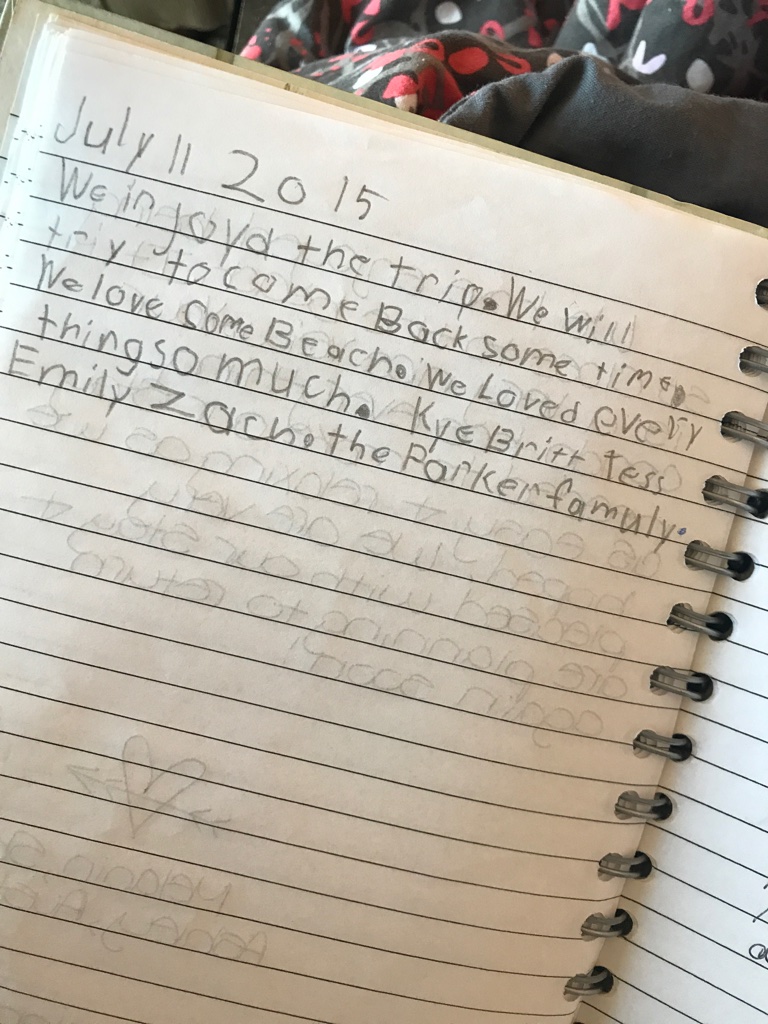 July 11 2015
We injoyd the trip. We will
try to come Back some time.
We love Some Beach. We Loved every
thing so much. Kye Britt Tess
Emily Zach. the Parker famuly.